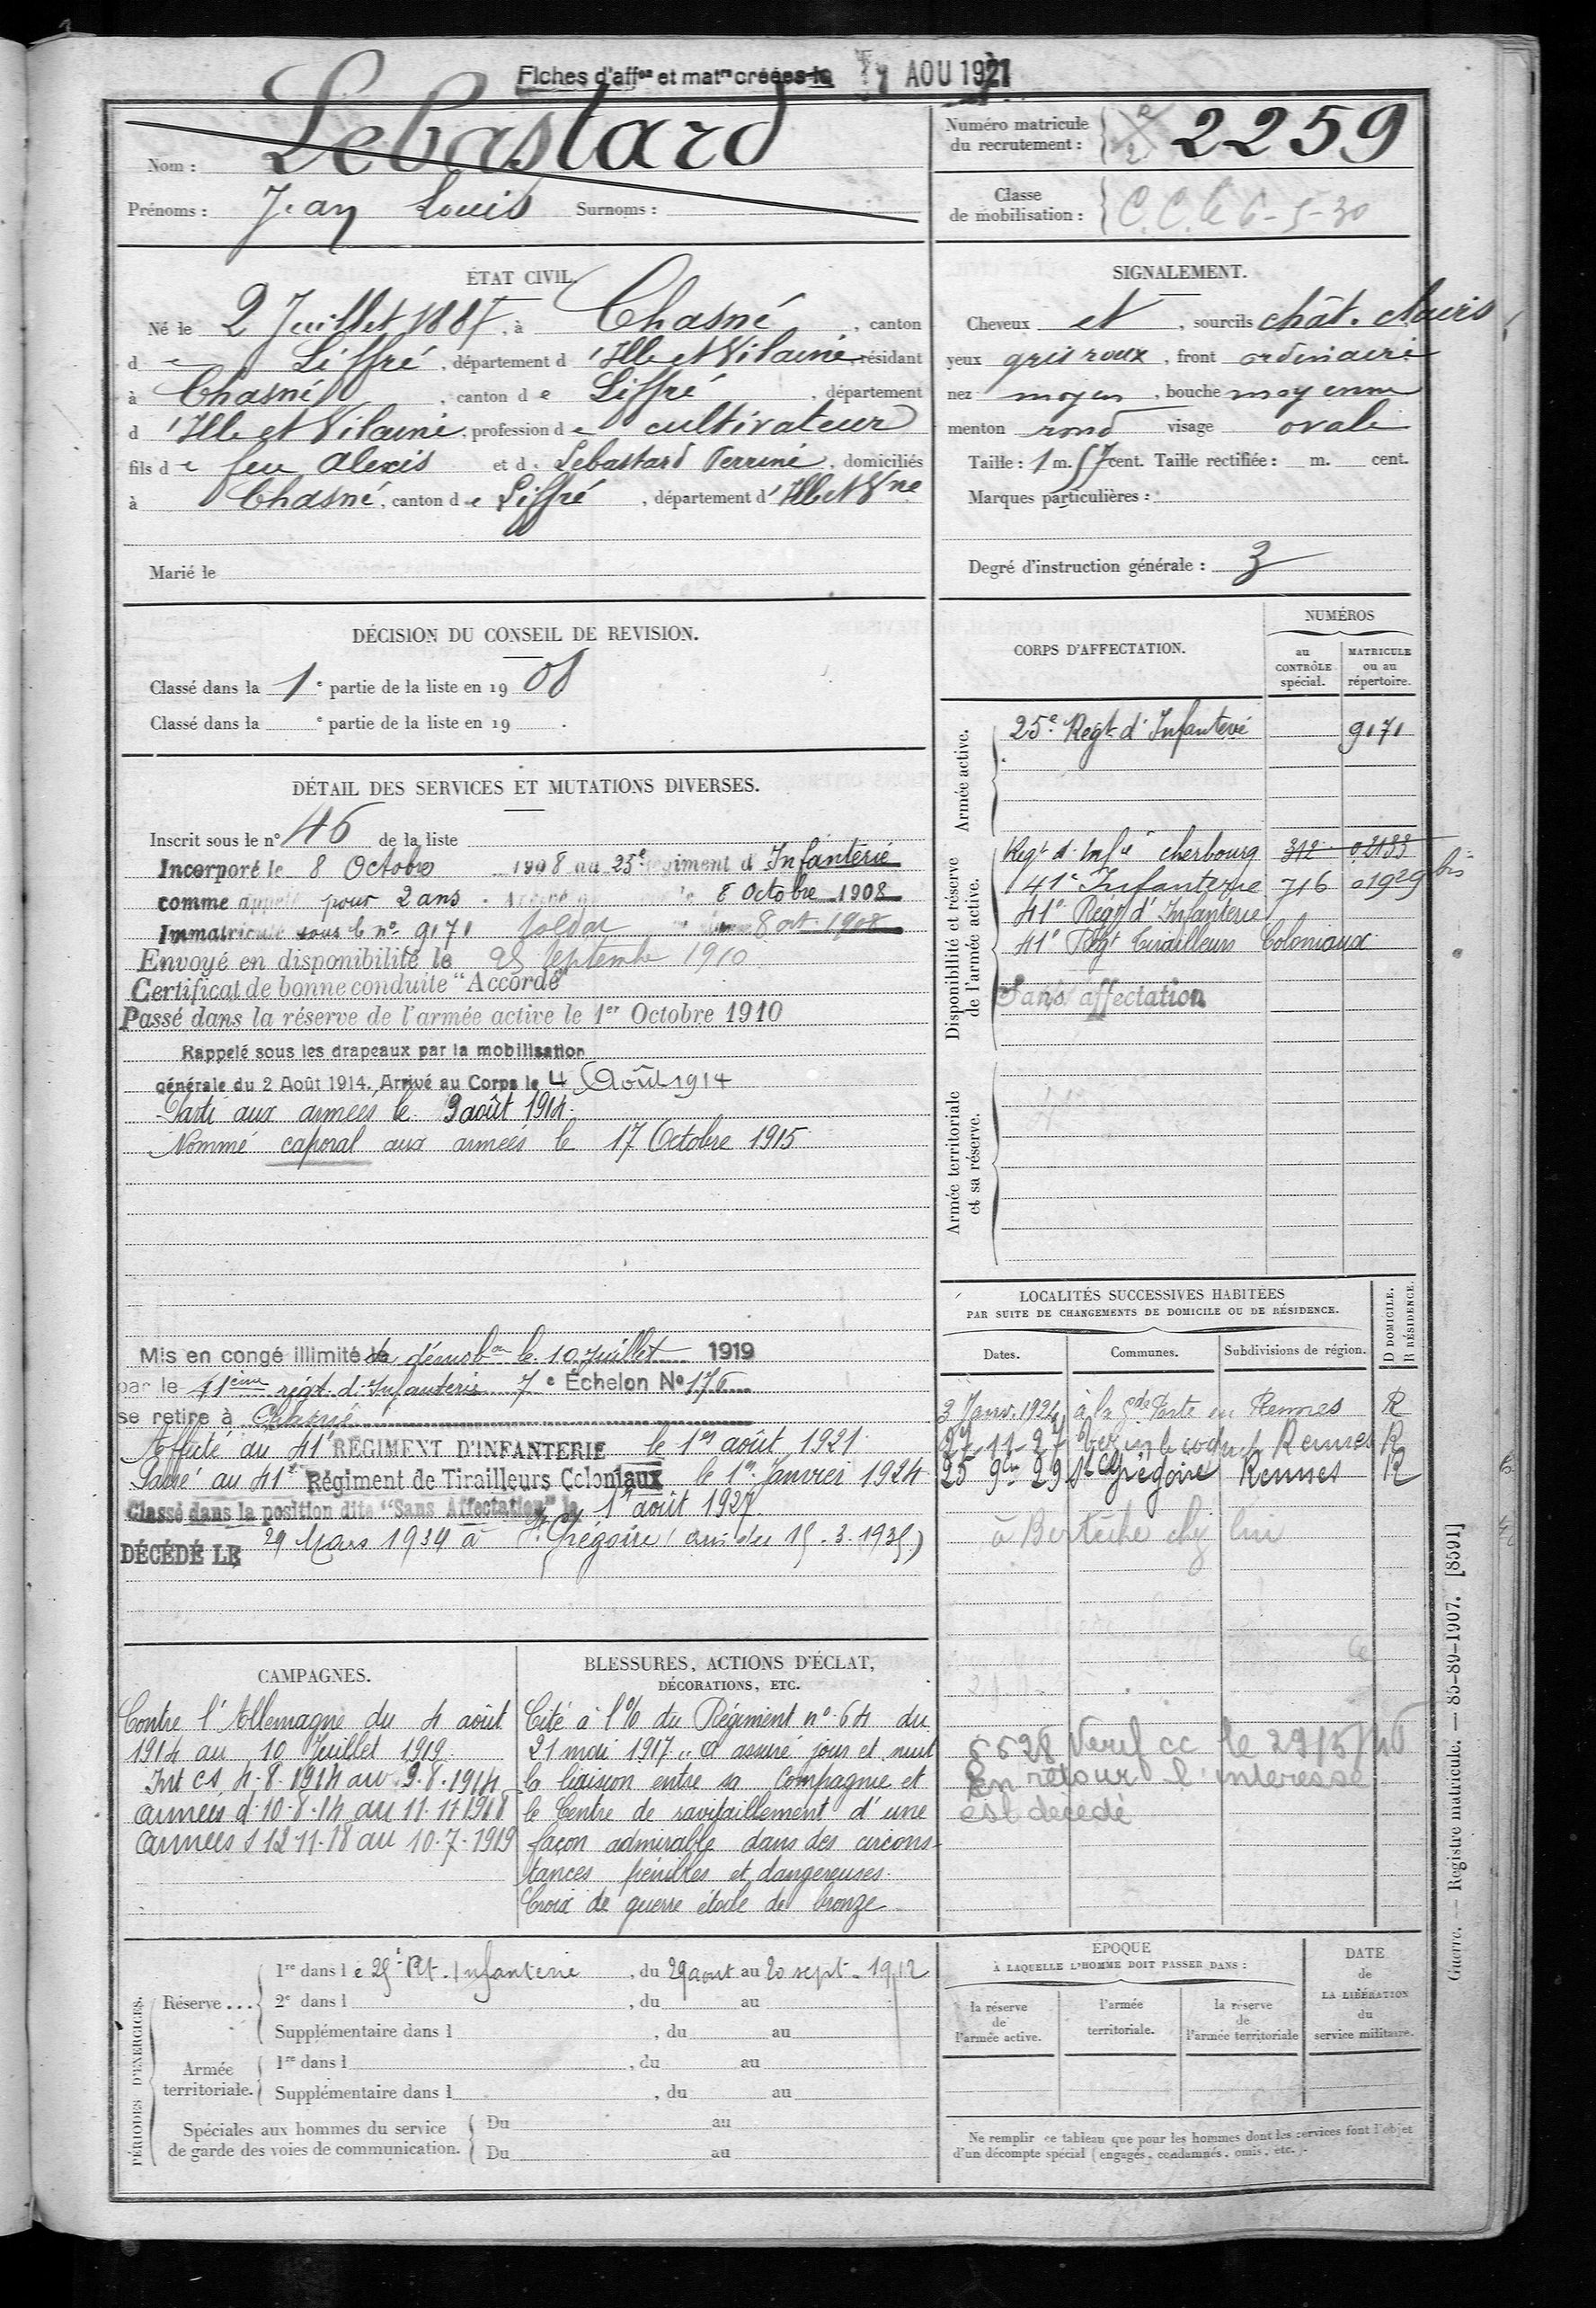 Fiches d'affon et matr créées le AOU 1921
Nom : Lebastard
Prénoms : Jean Louis Surnoms :
Numéro matricule du recrutement : 2259
Classe de mobilisation : C.C. le 6-5-30
ÉTAT CIVIL.
Né le 2 Juillet 1887, à Chasné, canton
de Liffré, département d'Ille et Vilaine, résidant
à Chasné, canton de Liffré, département
d'Ille et Vilaine, profession de cultivateur
fils de feu Alexis et d. Lebastard Perrine, domiciliés
à Chasné, canton de Liffré, département d'Ille et Vne
Marié le
SIGNALEMENT.
Cheveux et, sourcils chât. clairs
yeux gris roux, front ordinaire
nez moyen, bouche moyenne
menton rond visage ovale
Taille : 1 m. 57 cent. Taille rectifiée : m. cent.
Marques particulières :
Degré d'instruction générale : 3
DÉCISION DU CONSEIL DE REVISION.
Classé dans la 1e partie de la liste en 1908
Classé dans la e partie de la liste en 19 .
DÉTAIL DES SERVICES ET MUTATIONS DIVERSES.
Inscrit sous le n° 46 de la liste
Incorporé le 8 Octobre 1908 au 25e régiment d'Infanterie
comme appelé pour 2 ans. Arrivé le 8 Octobre 1908
Immatriculé sous le no 9171 soldat 8 oct 1908
Envoyé en disponibilité le 25 Septembre 1910
Certificat de bonne conduite "Accordé"
Passé dans la réserve de l'armée active le 1er Octobre 1910
Rappelé sous les drapeaux par la mobilisation
générale du 2 Août 1914. Arrivé au Corps le 4 Août 1914
Parti aux armées le 9 août 1914.
Nommé caporal aux armées le 17 Octobre 1915
Mis en congé illimité de démobon le 10 Juillet 1919
par le 41ème régt d'Infanterie 7e Échelon No 176
se retire à Chasné
Affecté au 41e RÉGIMENT D'INFANTERIE le 1er août 1921
Passé au 41e Régiment de Tirailleurs Coloniaux le 1er Janvier 1924
Classé dans la position dite "Sans Affectation" le 1er août 1927
DÉCÉDÉ LE 29 Mars 1934 à St Grégoire (avis du 15.3.1935)
CORPS D'AFFECTATION.
NUMÉROS
au CONTRÔLE spécial.
MATRICULE ou au répertoire.
Armée active.
25e Regt d'Infanterie 9171
Disponibilité et réserve de l'armée active.
Regt d'Infie Cherbourg 312 02133
41e Infanterie 716 01929 bis
41e Régt d'Infanterie
41e Regt Tirailleurs Coloniaux
Sans affectation
Armée territoriale et sa réserve.
LOCALITÉS SUCCESSIVES HABITÉES
PAR SUITE DE CHANGEMENTS DE DOMICILE OU DE RÉSIDENCE.
Dates. Communes. Subdivisions de région. D DOMICILE. R RÉSIDENCE.
3 Janv. 1924 à la Porte en Rennes R
22-11-27 Rennes R
25 9bre 29 St Grégoire Rennes R
à
Verif cc le
En retour l'intéressé
est décédé
CAMPAGNES.
Contre l'Allemagne du 4 août
1914 au 10 Juillet 1919.
Int CS 4-8-1914 au 9.8.1914
armées d 10-8-14 au 11-11 1918
armées s 12 11-18 au 10-7-1919
BLESSURES, ACTIONS D'ÉCLAT,
DÉCORATIONS, ETC.
Cité à l'o/o du Régiment no 64 du
21 mai 1917 " a assuré jour et nuit
la liaison entre sa Compagnie et
le Centre de ravitaillement d'une
façon admirable dans des circons-
tances pénibles et dangereuses.
Croix de guerre étoile de bronze
PÉRIODES D'EXERCICES.
Réserve ...
1re dans le 25e Rt. Infanterie, du 29 aout au 20 sept. 1912
2e dans l , du au
Supplémentaire dans l , du au
Armée territoriale.
1re dans l , du au
Supplémentaire dans l , du au
Spéciales aux hommes du service
de garde des voies de communication.
Du au
Du au
EPOQUE
À LAQUELLE L'HOMME DOIT PASSER DANS :
la réserve de l'armée active.
l'armée territoriale.
la réserve de l'armée territoriale
DATE de LA LIBÉRATION du service militaire.
Ne remplir ce tableau que pour les hommes dont les services font l'objet
d'un décompte spécial (engagés, condamnés, omis, etc.).
Guerre. — Registre matricule. — 85-89-1907. [8591]